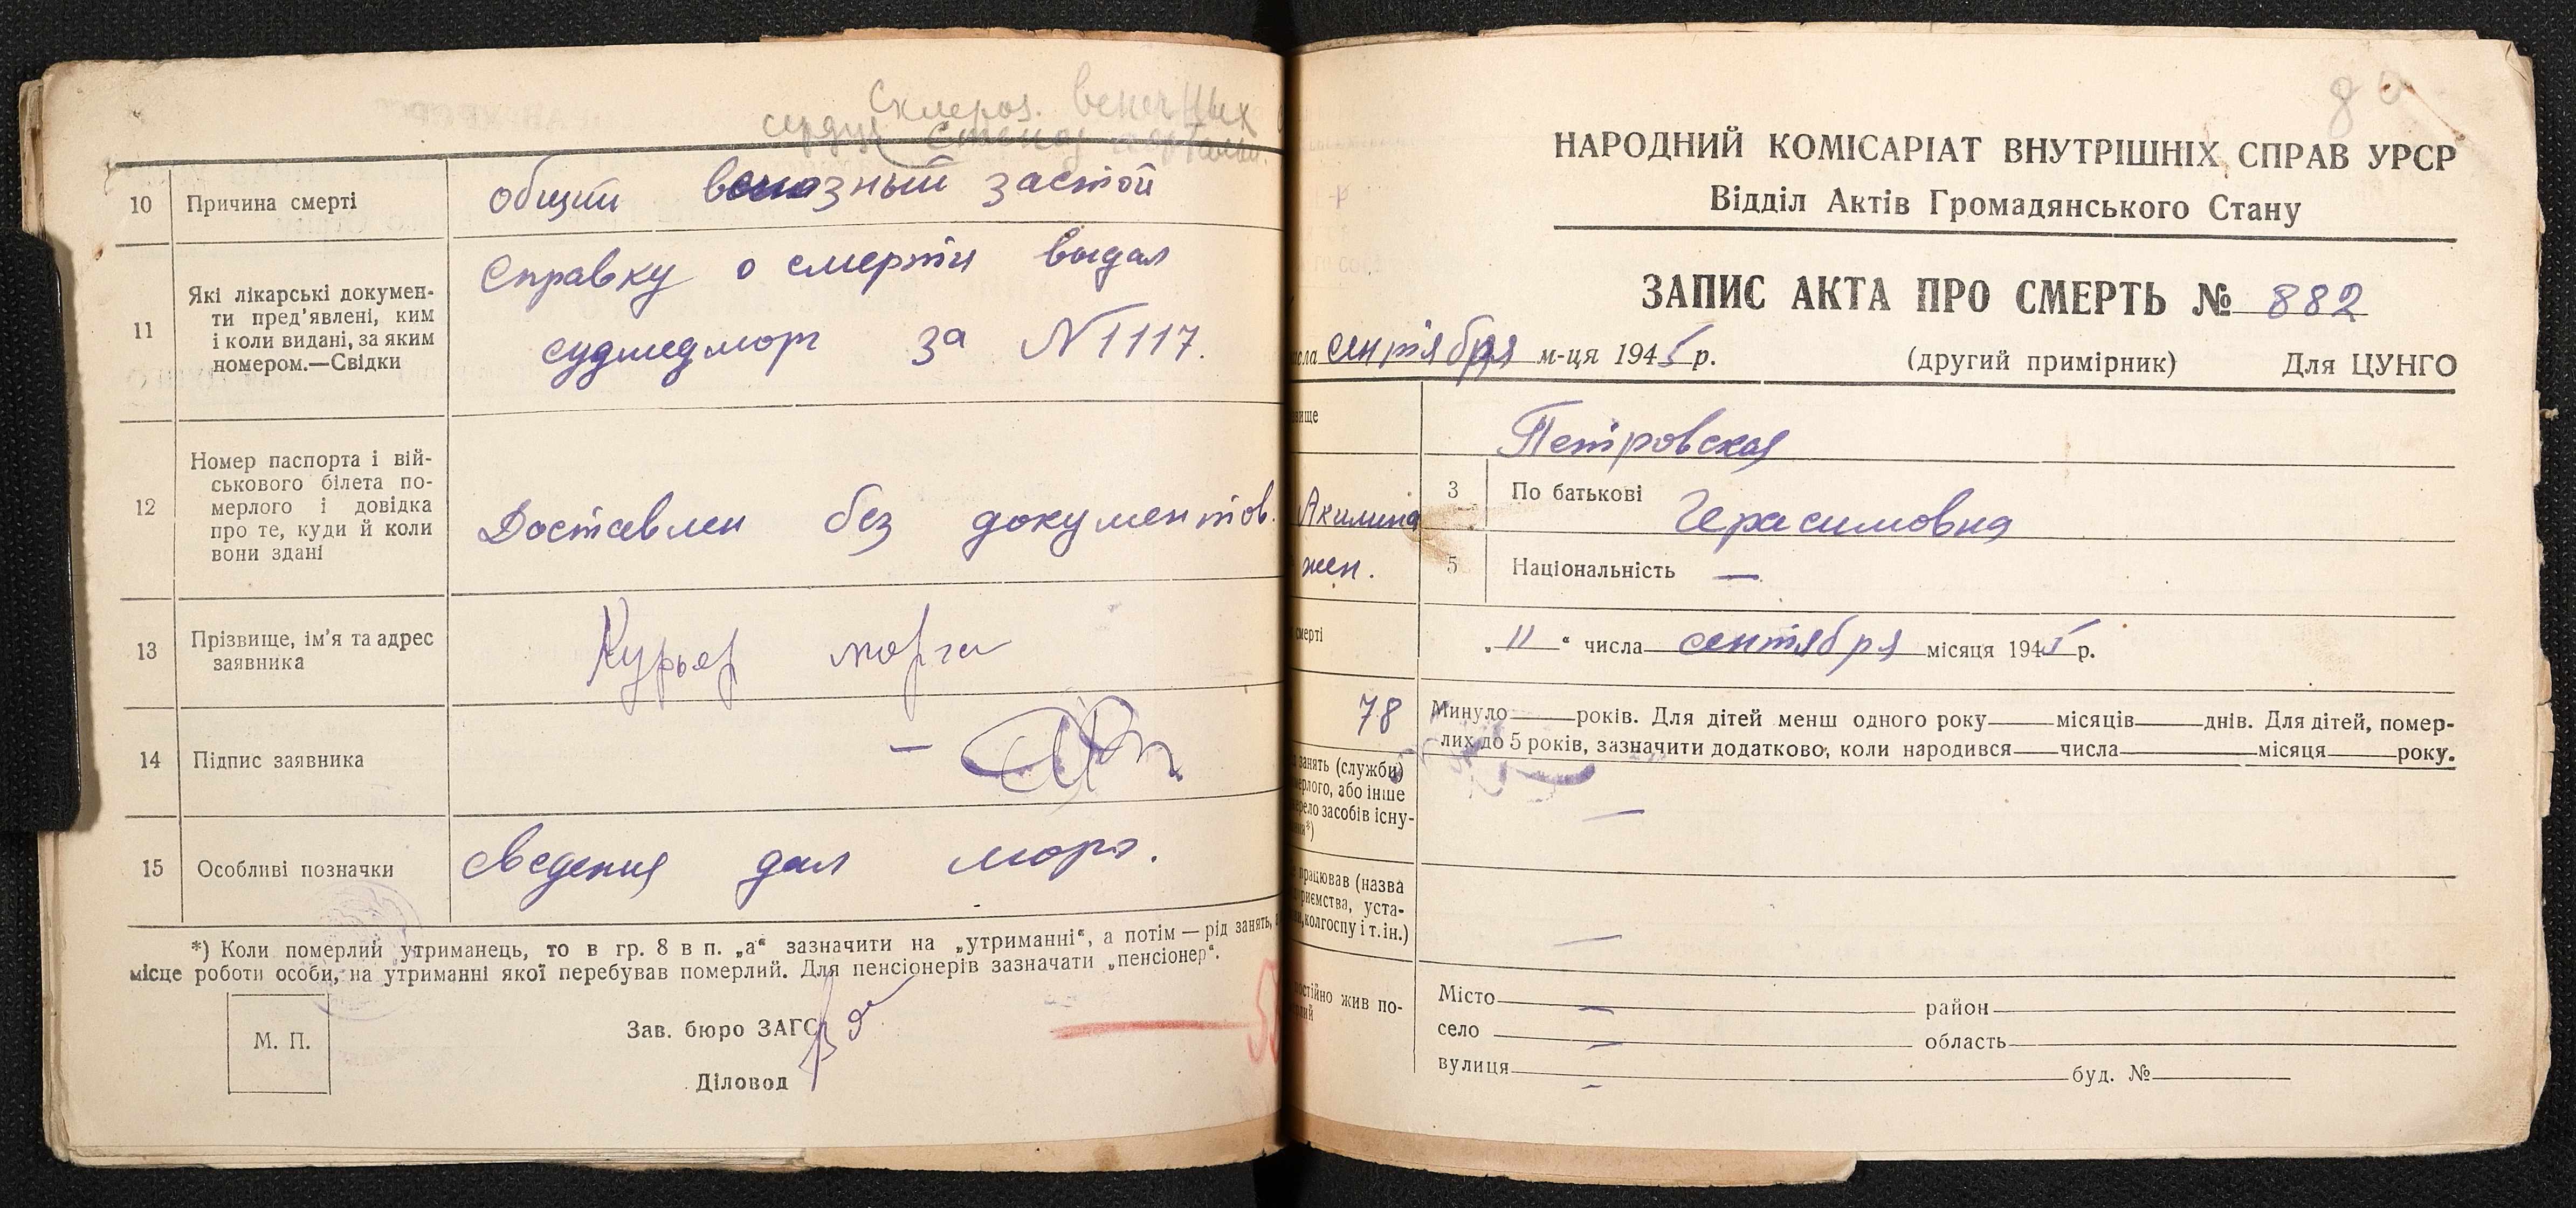 Склероз. венечных
сердца
10 Причина смерті общий венозный застой
11 Які лікарські докумен-
ти пред'явлені, ким
і коли видані, за яким
номером.—Свідки
Справку о смерти выдал
судмедморг за N 1117.
12 Номер паспорта і вій-
ськового білета по-
мерлого і довідка
про те, куди й коли
вони здані
Доставлен без документов.
13 Прізвище, ім'я та адрес
заявника
Курьер морга
14 Підпис заявника —
15 Особливі позначки сведения дал морг.
*) Коли померлий утриманець, то в гр. 8 в п. „а“ зазначити на „утриманні“, а потім — рід занять,
місце роботи особи, на утриманні якої перебував померлий. Для пенсіонерів зазначати „пенсіонер“.
М. П.
Зав. бюро ЗАГС
Діловод
80
НАРОДНИЙ КОМІСАРІАТ ВНУТРІШНІХ СПРАВ УРСР
Відділ Актів Громадянського Стану
ЗАПИС АКТА ПРО СМЕРТЬ № 882
сла сентября м-ця 1945 р. (другий примірник) Для ЦУНГО
вище Петровская
Акилина 3 По батькові Герасимовна
жен. 5 Національність —
смерті „11“ числа сентября місяця 1945 р.
78 Минуло років. Для дітей менш одного року місяців днів. Для дітей, помер-
лих до 5 років, зазначити додатково, коли народився числа місяця року.
занять (служби)
мерлого, або інше
рело засобів існу-
*)
—
працював (назва
приємства, уста-
колгоспу і т. ін.)
—
постійно жив по-
Місто — район
село — область
вулиця — буд. №